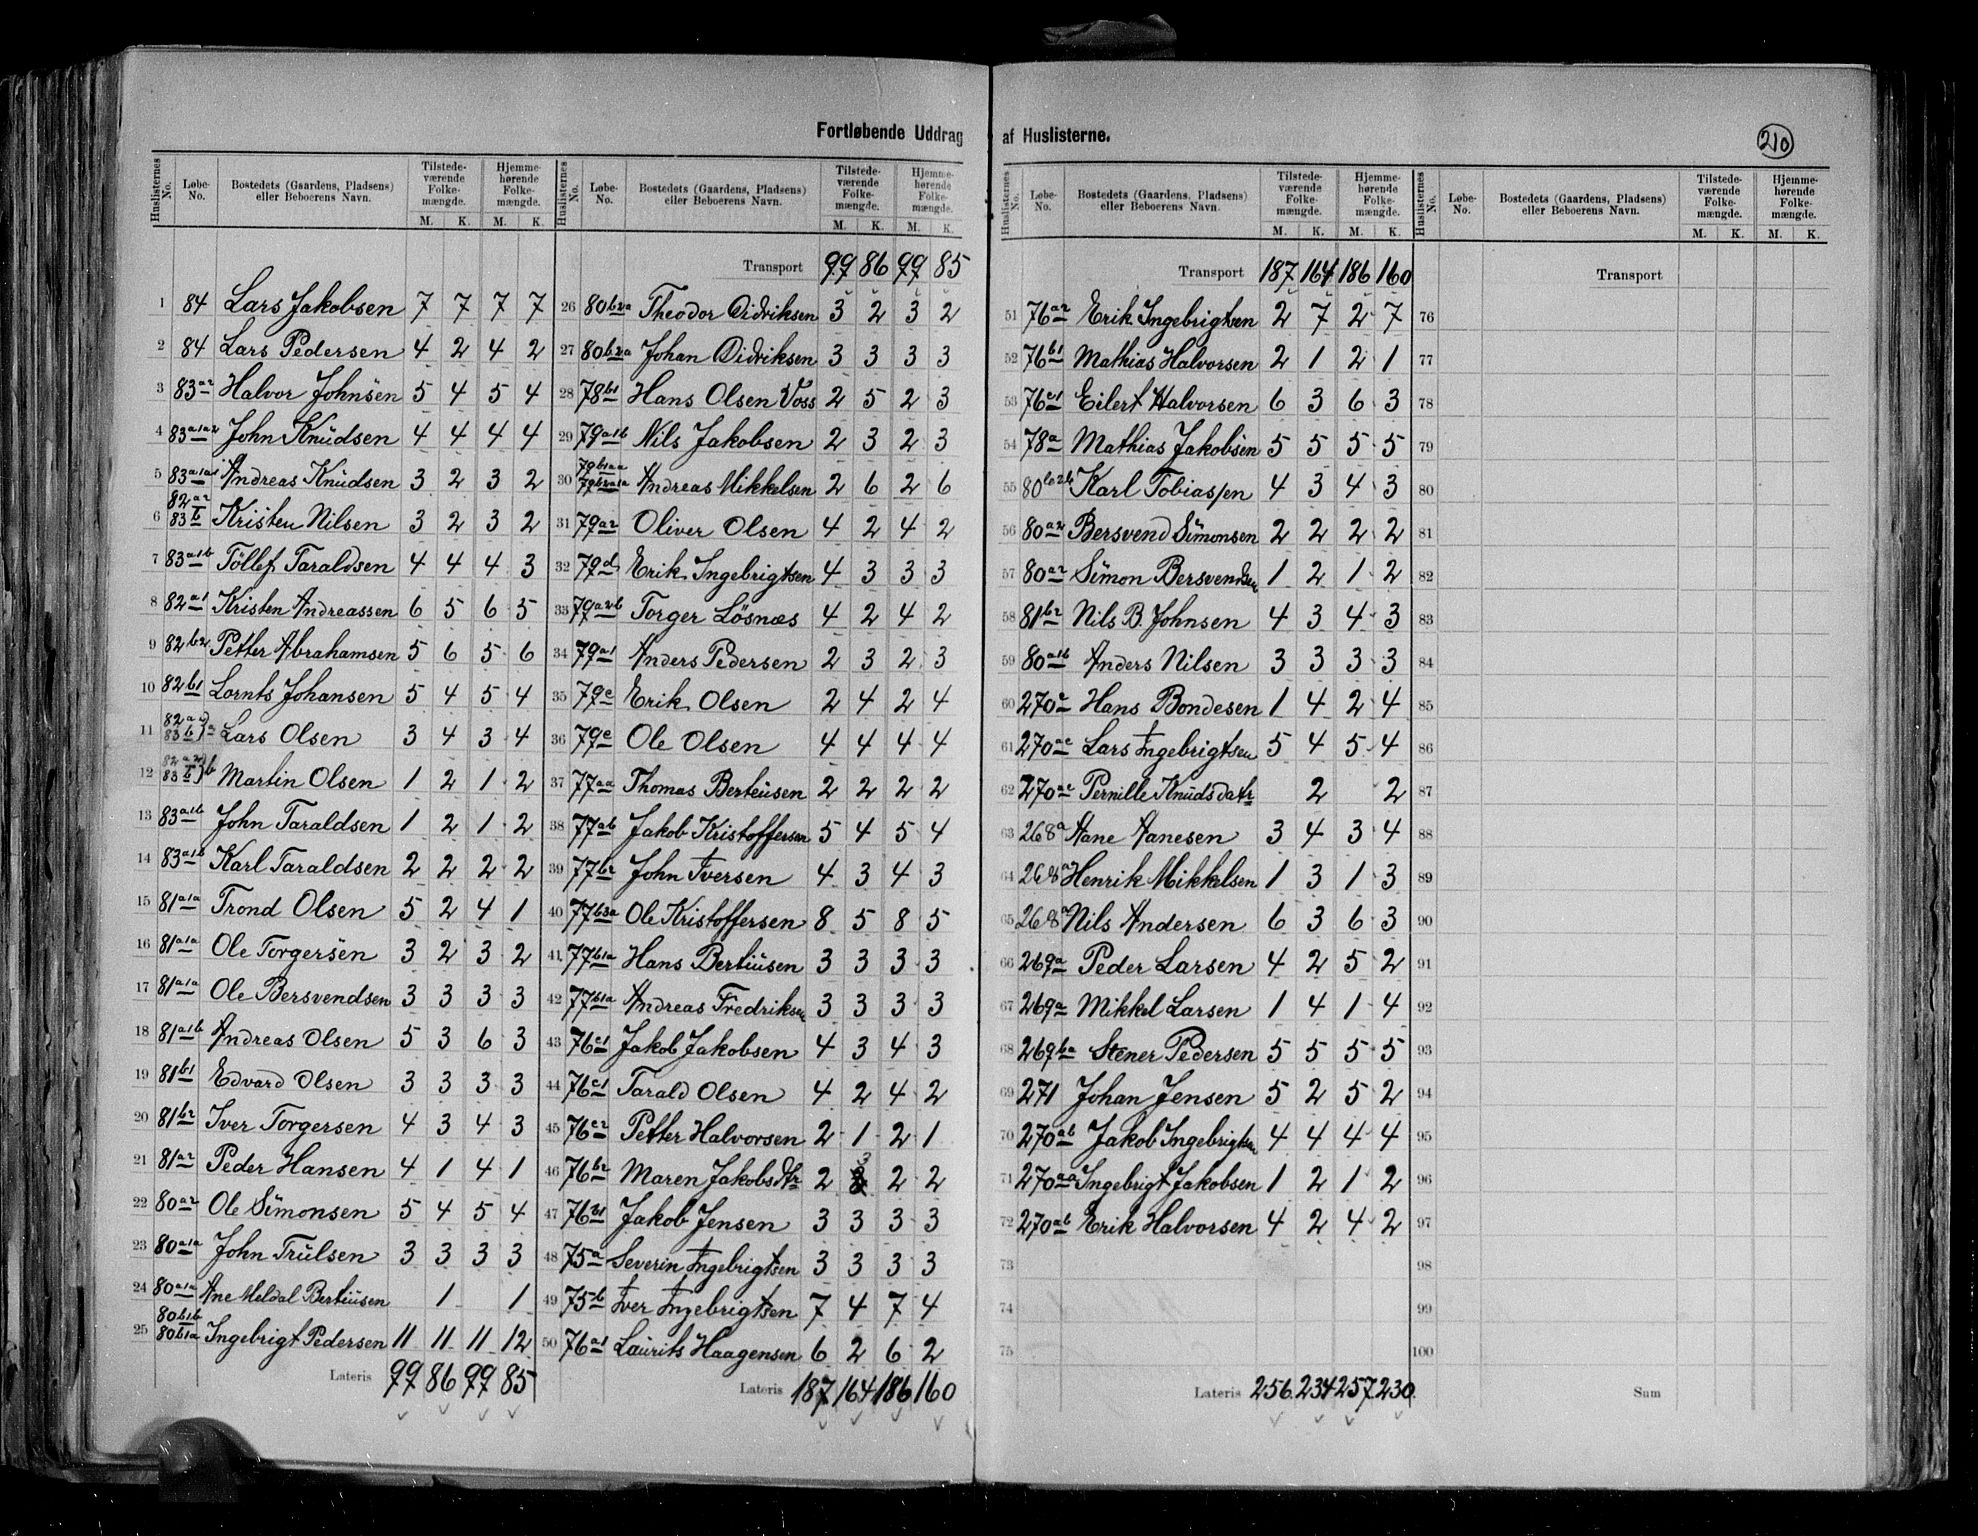 Fortløbende Uddrag af Huslisterne.
210
Huslisternes No. Løbe-No. Bostedets (Gaardens, Pladsens) eller Beboerens Navn. Tilstedeværende Folkemængde. M. K. Hjemmehørende Folkemængde. M. K.
1 84 Lars Jakobsen 7 7 7 7
2 84 Lars Pedersen 4 2 4 2
3 83 a2 Halvor Johnsen 5 4 5 4
4 83 a1a2 John Knudsen 4 4 4 4
5 83 a1a1 Andreas Knudsen 3 2 3 2
6 82 a2 83 I Kristen Nilsen 3 2 3 2
7 83 a1b Töllef Taraldsen 4 4 4 3
8 82 a1 Kristen Andreassen 6 5 6 5
9 82 b2 Petter Abrahamsen 5 6 5 6
10 82 b1 Lornts Johansen 5 4 5 4
11 82 a2 83 b) a Lars Olsen 3 4 3 4
12 82 a2 83 b) b Martin Olsen 1 2 1 2
13 83 a1b John Taraldsen 1 2 1 2
14 83 a1b Karl Taraldsen 2 2 2 2
15 81 a1a Trond Olsen 5 2 4 1
16 81 a1a Ole Torgersen 3 2 3 2
17 81 a1a Ole Bersvendsen 3 3 3 3
18 81 a1b Andreas Olsen 5 3 6 3
19 81 b1 Edvard Olsen 3 3 3 3
20 81 b2 Iver Torgersen 4 3 4 3
21 81 a2 Peder Hansen 4 1 4 1
22 80 a2 Ole Simonsen 5 4 5 4
23 80 a1a John Trulsen 3 3 3 3
24 80 a1a Ane Meldal Bertiusen 1 1
25 80 b1b 80 b1a Ingebrigt Pedersen 11 11 11 12
Lateris 99 86 99 85
Huslisternes No. Løbe-No. Bostedets (Gaardens, Pladsens) eller Beboerens Navn. Tilstedeværende Folkemængde. M. K. Hjemmehørende Folkemængde. M. K.
Transport 99 86 99 85
26 80 b2a Theodor Didriksen 3 2 3 2
27 80 b2a Johan Didriksen 3 3 3 3
28 78 b1 Hans Olsen Voss 2 5 2 3
29 79 a1b Nils Jakobsen 2 3 2 3
30 79 b1aa 79 b2a1a Andreas Mikkelsen 2 6 2 6
31 79 a2 Oliver Olsen 4 2 4 2
32 79 d Erik Ingebrigtsen 4 3 3 3
33 79 a2b Torger Lösnæs 4 2 4 2
34 79 a1 Anders Pedersen 2 3 2 3
35 79 c Erik Olsen 2 4 2 4
36 79 e Ole Olsen 4 4 4 4
37 77 aa Thomas Bertiusen 2 2 2 2
38 77 ab Jakob Kristoffersen 5 4 5 4
39 77 b2 John Iversen 4 3 4 3
40 77 b3a Ole Kristoffersen 8 5 8 5
41 77 b1a Hans Bertiusen 3 3 3 3
42 77 b1a Andreas Fredriksen 3 3 3 3
43 76 c1 Jakob Jakobsen 4 3 4 3
44 76 c1 Tarald Olsen 4 2 4 2
45 76 c2 Petter Halvorsen 2 1 2 1
46 76 b2 Maren Jakobsdtr 2 3 2 2
47 76 b1 Jakob Jensen 3 3 3 3
48 75 a Severin Ingebrigtsen 3 3 3 3
49 75 b Iver Ingebrigtsen 7 4 7 4
50 76 a1 Laurits Haagensen 6 2 6 2
Lateris 187 164 186 160
Huslisternes No. Løbe-No. Bostedets (Gaardens, Pladsens) eller Beboerens Navn. Tilstedeværende Folkemængde. M. K. Hjemmehørende Folkemængde. M. K.
Transport 187 164 186 160
51 76 a2 Erik Ingebrigtsen 2 7 2 7
52 76 b1 Mathias Halvorsen 2 1 2 1
53 76 c1 Eilert Halvorsen 6 3 6 3
54 78 a Mathias Jakobsen 5 5 5 5
55 80 b2b Karl Tobiassen 4 3 4 3
56 80 a2 Bersvend Simonsen 2 2 2 2
57 80 a2 Simon Bersvendsen 1 2 1 2
58 81 b2 Nils B. Johnsen 4 3 4 3
59 80 a1b Anders Nilsen 3 3 3 3
60 270 c Hans Bondesen 1 4 2 4
61 270 ac Lars Ingebrigtsen 5 4 5 4
62 270 ac Pernille Knudsdatr 2 2
63 268 a Aane Aanesen 3 4 3 4
64 268 a Henrik Mikkelsen 1 3 1 3
65 268 a Nils Andersen 6 3 6 3
66 269 a Peder Larsen 4 2 5 2
67 269 a Mikkel Larsen 1 4 1 4
68 269 ba Stener Pedersen 5 5 5 5
69 271 Johan Jensen 5 2 5 2
70 270 ab Jakob Ingebrigtsen 4 4 4 4
71 270 aa Ingebrigt Jakobsen 1 2 1 2
72 270 ab Erik Halvorsen 4 2 4 2
73
74
75
Lateris 256 234 257 230
Huslisternes No. Løbe-No. Bostedets (Gaardens, Pladsens) eller Beboerens Navn. Tilstedeværende Folkemængde. M. K. Hjemmehørende Folkemængde. M. K.
Transport
76
77
78
79
80
81
82
83
84
85
86
87
88
89
90
91
92
93
94
95
96
97
98
99
100
Sum